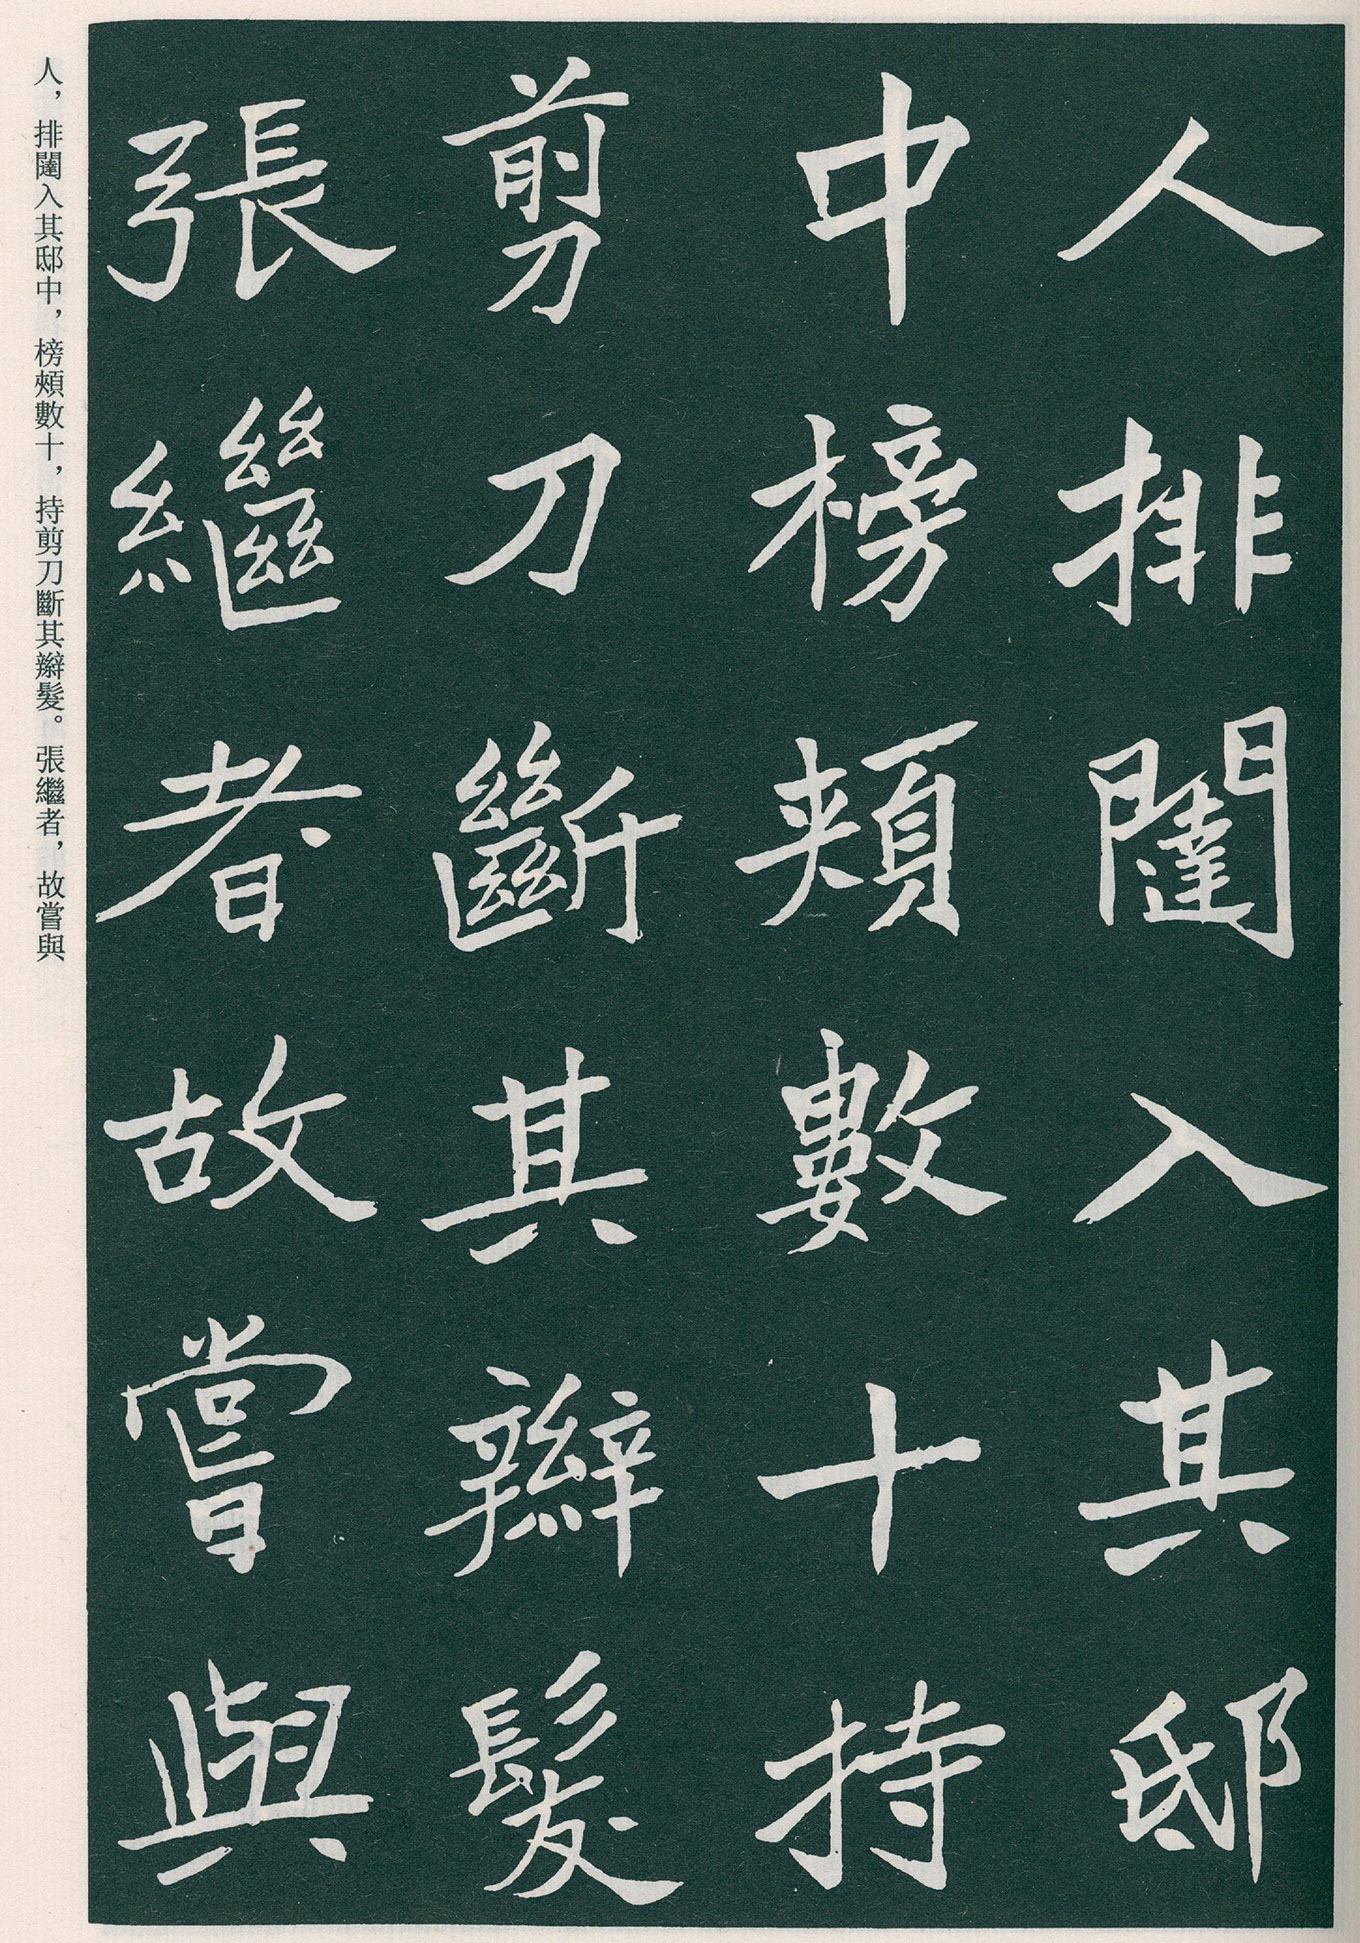 人排闥入其邸
中榜頰數十持
剪刀斷其辮髮
張繼者故嘗與
人，排闥入其邸中，榜頰數十，持剪刀斷其辮髮。張繼者，故嘗與